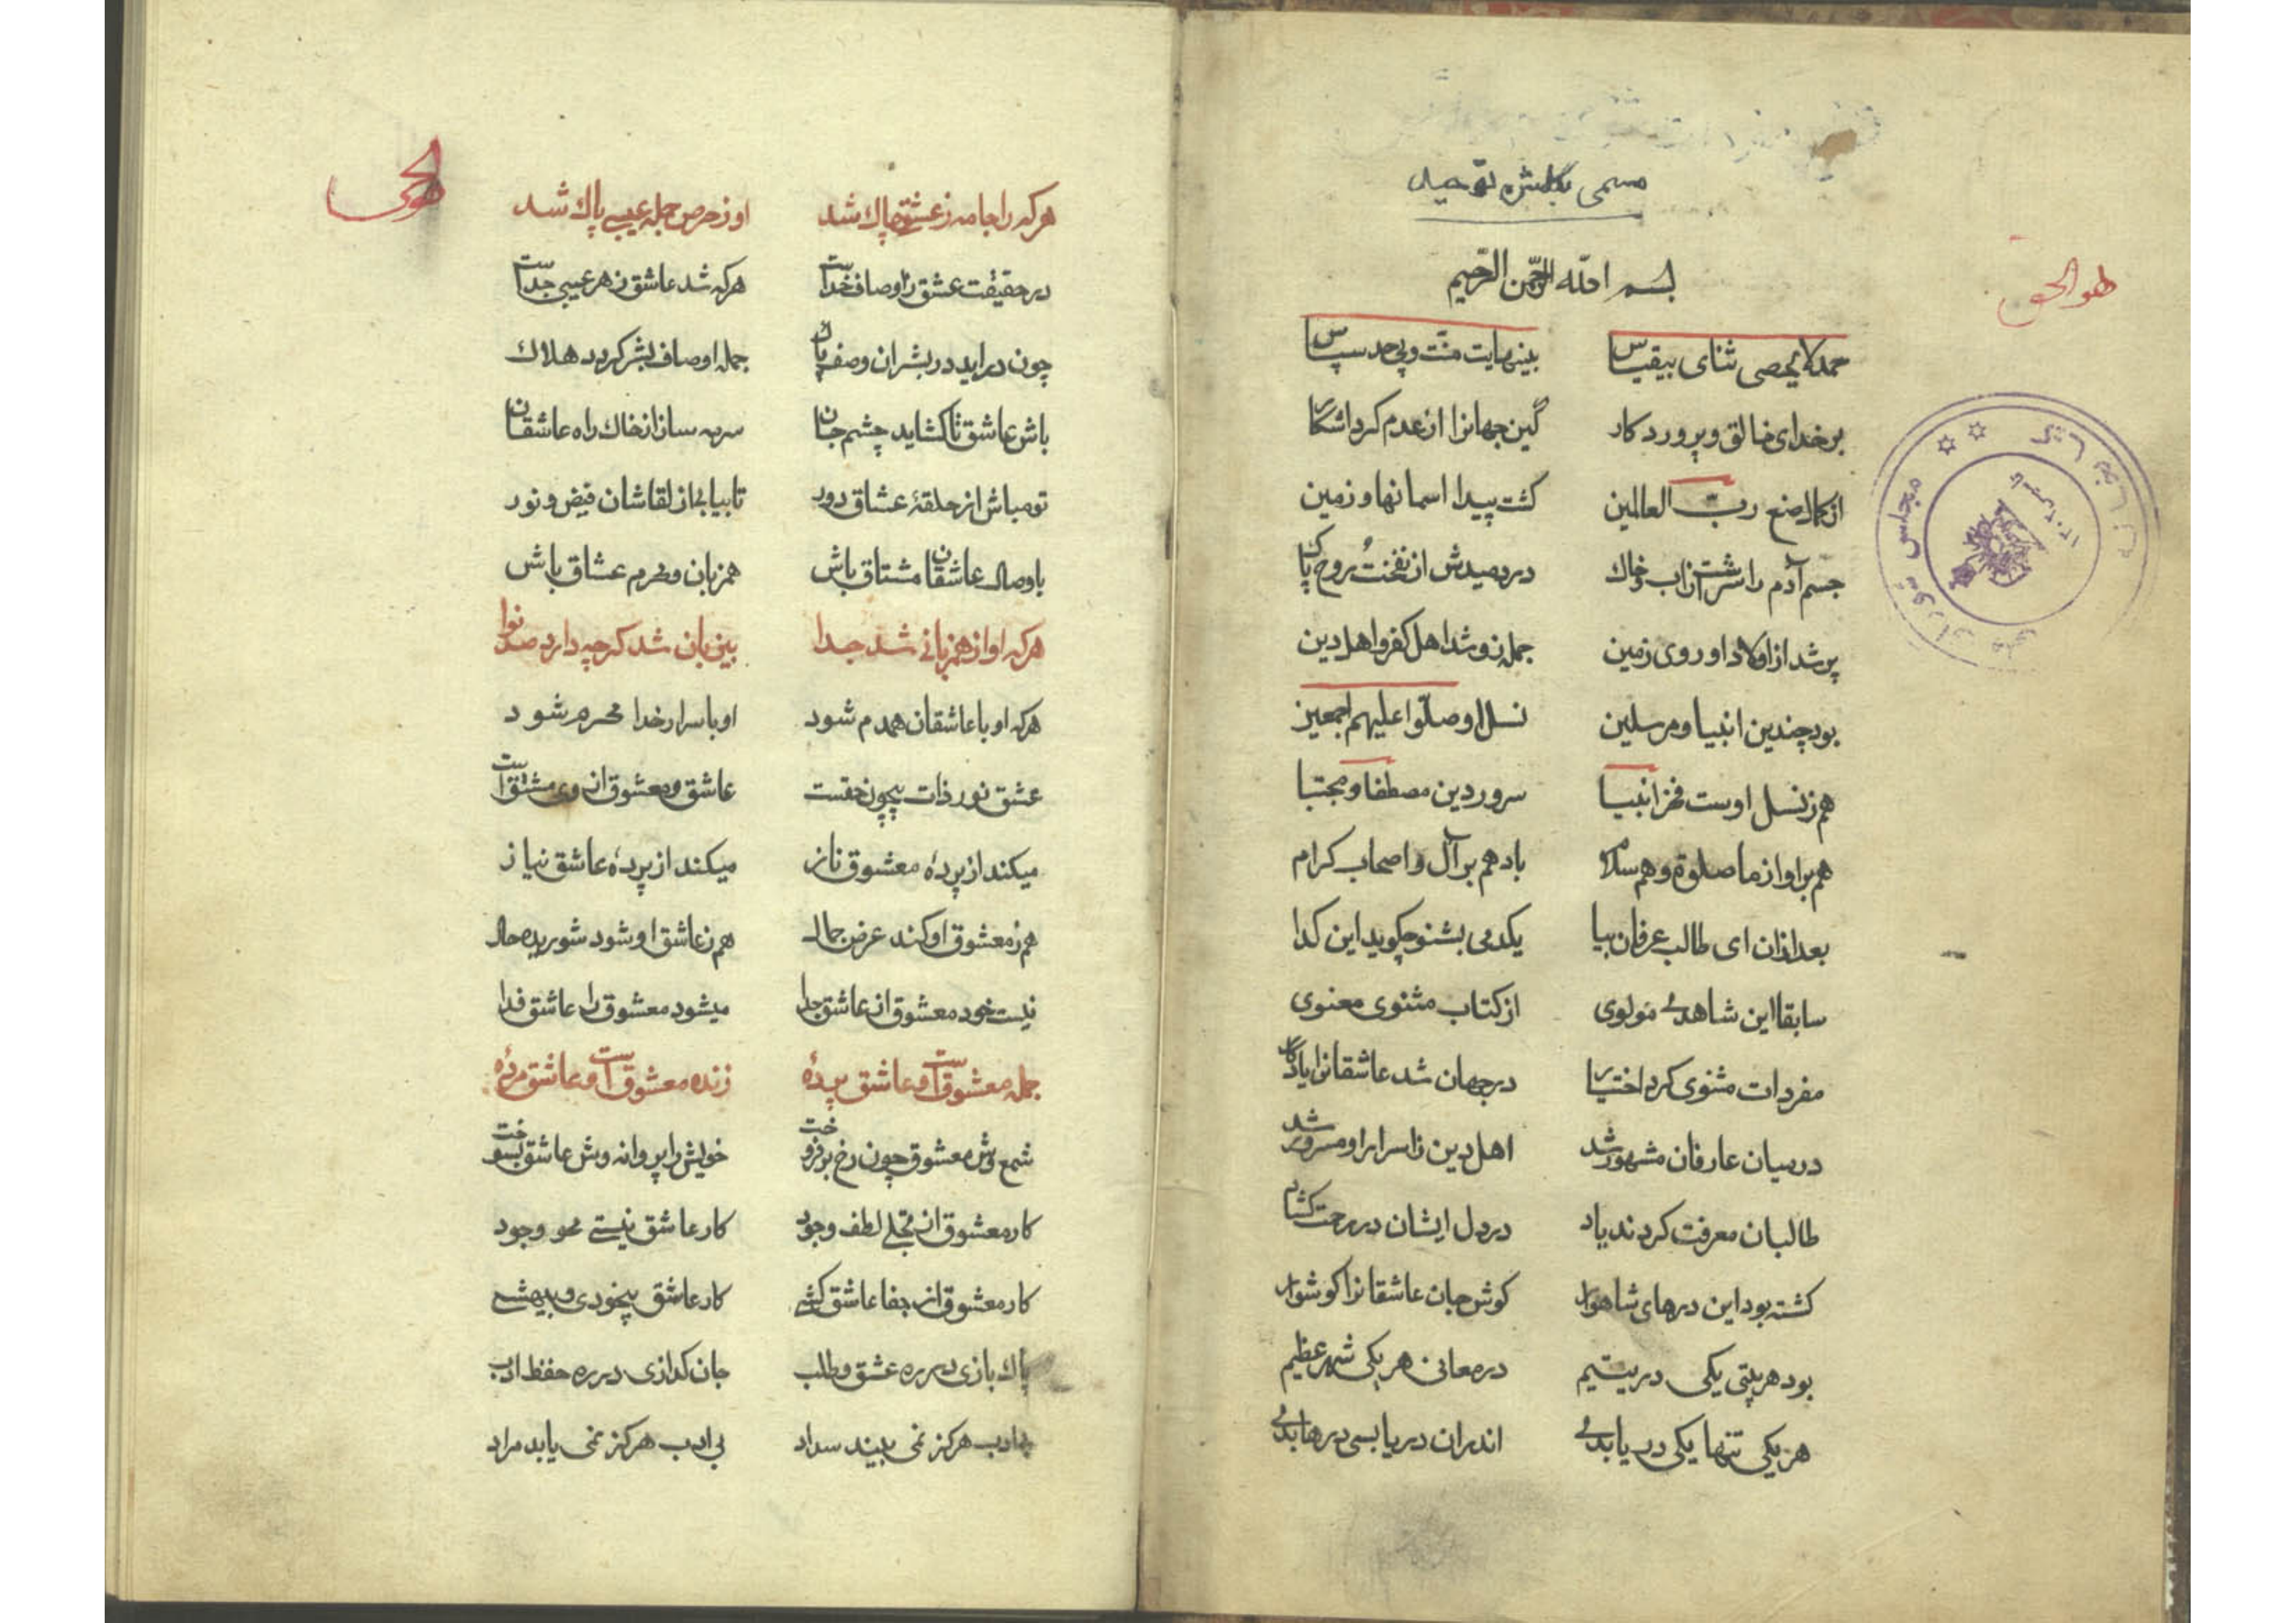 مسمی بگلشن توحید
هو الحق
بسم الله الرحمن الرحیم
حمد لا یحصی ثنای بیقیاس بینهایت منت و بیحد سپاس
بر خدای خالق و پروردکار کین جهانرا از عدم کرد اشکار
از کمال صنع رب العالمین کشت پیدا اسمانها و زمین
جسم آدم را سرشت از اب و خاک دردمیدش از نفخت روح پاک
پر شد از اولاد او روی زمین جمله زو شد اهل کفر و اهل دین
بود چندین انبیا و مرسلین نسل او صلوا علیهم اجمعین
هم ز نسل اوست فخر انبیا سرور دین مصطفا و مجتبا
هم بر او از ما صلوة و هم سلام باد هم بر آل و اصحاب کرام
بعد ازان ای طالب عرفان بیا یکدمی بشنو چکوید این کدا
سابقا این شاهدی مولوی از کتاب مثنوی معنوی
مفردات مثنوی کرد اختیار در جهان شد عاشقانرا یادکار
در میان عارفان مشهور شد اهل دین ز اسرار او مسرور شد
طالبان معرفت کردند یاد در دل ایشان در رحمت کشاد
کشته بود این درهای شاهوار کوش جان عاشقانرا کوشوار
بود هر بیتی یکی در یتیم در معانی هر یکی شهر عظیم
هر یکی تنها یکی دریا بدی اندران دریا بسی درها بدی
مجلس شورای ملی
کتابخانه
هو الحی
هر که را جامه ز عشقی چاک شد او ز حرص جمله عیبی پاک شد
در حقیقت عشق ز اوصاف خداست هر که شد عاشق ز هر عیبی جداست
چون دراید در بشر ان وصف پاک جمله اوصاف بشر کردد هلاک
باش عاشق تا کشاید چشم جان سرمه ساز از خاک راه عاشقان
تو مباش از حلقهٔ عشاق دور تا بیابی از لقاشان فیض و نور
با وصال عاشقان مشتاق باش همزبان و محرم عشاق باش
هر که او از همزبانی شد جدا بی زبان شد کرچه دارد صد نوا
هر که او با عاشقان همدم شود او باسرار خدا محرم شود
عشق نور ذات بیچون حقست عاشق و معشوق از وی مشتق است
میکند از پردهٔ معشوق ناز میکند از پردهٔ عاشق نیاز
هم ز معشوق او کند عرض جمال هم ز عاشق او شود شوریده حال
نیست خود معشوق از عاشق جدا میشود معشوق را عاشق فدا
جمله معشوق است و عاشق پردهٔ زنده معشوق است و عاشق مردهٔ
شمع وش معشوق چون رخ بر فروخت خویش را پروانه وش عاشق بسوخت
کار معشوق از تجلی لطف و جود کار عاشق نیستی محو وجود
کار معشوق از جفا عاشق کشی کار عاشق بیخودی و بیهشی
پاک بازی در ره عشق و طلب جان کدازی در ره حفظ ادب
بی ادب هرکز نمی بیند سداد بی ادب هرکز نمی یابد مراد